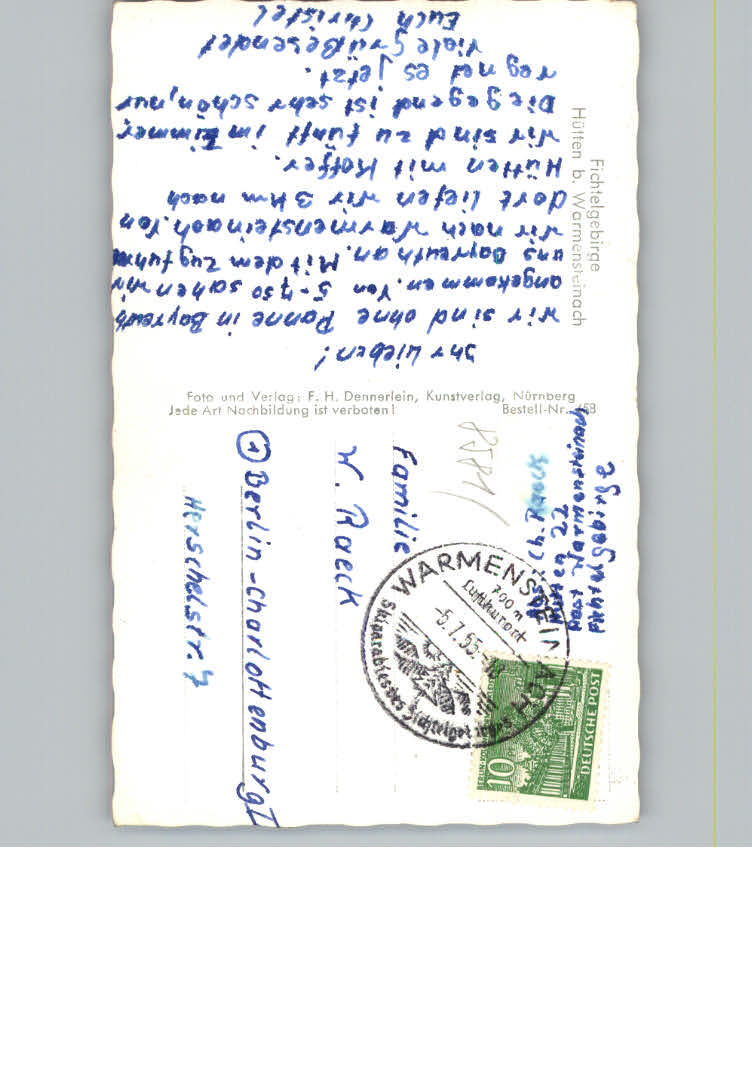 Ihr Lieben!
Wir sind ohne Panne in Bayreuth
angekommen. Von 5-7.30 sahen wir
uns Bayreuth an. Mit dem Zug fuhren
wir nach Warmensteinach. Von
dort liefen wir 3 km nach
Hütten mit Koffer.
Wir sind zu fünft im Zimmer,
Die gegend ist sehr schön, nur
regnet es jetzt.
Viele Grüße sendet
Euch Christel
Fichtelgebirge
Hütten b. Warmensteinach
Foto und Verlag: F. H. Dennerlein, Kunstverlag, Nürnberg
Jede Art Nachbildung ist verboten!
Bestell-Nr. 
Ch. Raeck
Hütten 22
Post Warmensteinach
Fichtelgebirge
8581/
Familie
W. Raeck
(1) Berlin-Charlottenburg I
Herschelstr. 7
WARMENSTEINACH
700 m
Luftkurort
-5.7.55
Skiparadies des Fichtelgebirges
10
DEUTSCHE POST